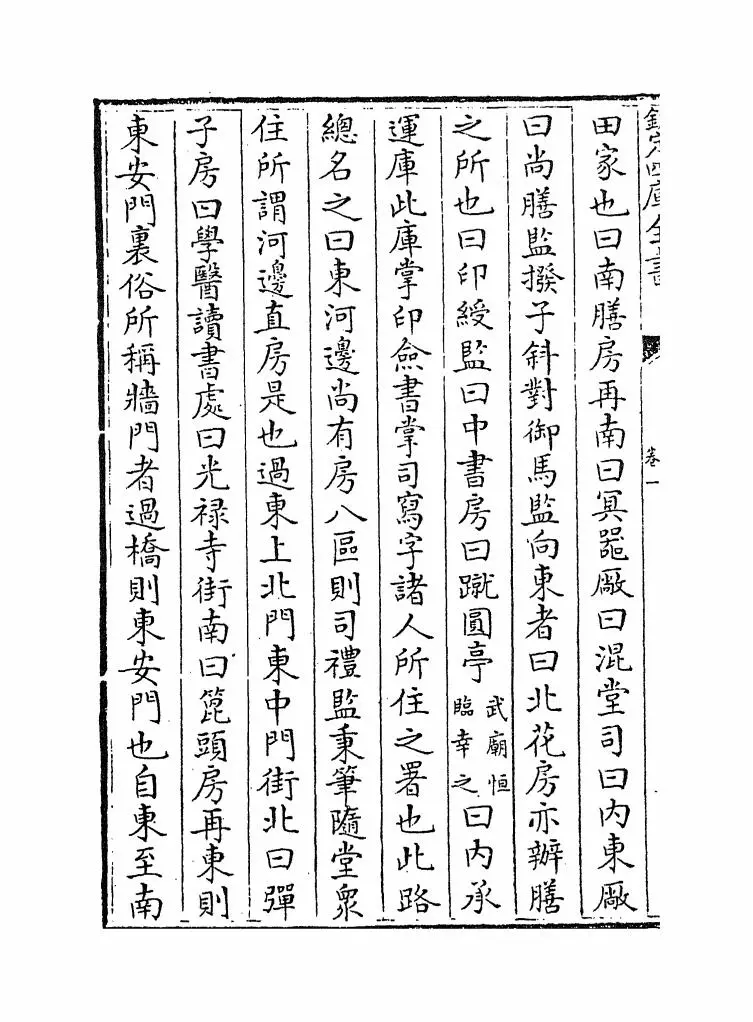 欽定四庫全書
卷一
田家也曰南膳房再南曰冥器厰曰混堂司曰内東厰
曰尚膳監撥子斜對御馬監向東者曰北花房亦辦膳
之所也曰印綬監曰中書房曰蹴圓亭武廟恒臨幸之曰内承
運庫此庫掌印僉書掌司寫字諸人所住之署也此路
總名之曰東河邊尚有房八區則司禮監秉筆隨堂衆
住所謂河邊直房是也過東上北門東中門街北曰彈
子房曰學醫讀書處曰光禄寺街南曰篦頭房再東則
東安門裏俗所稱牆門者過橋則東安門也自東至南